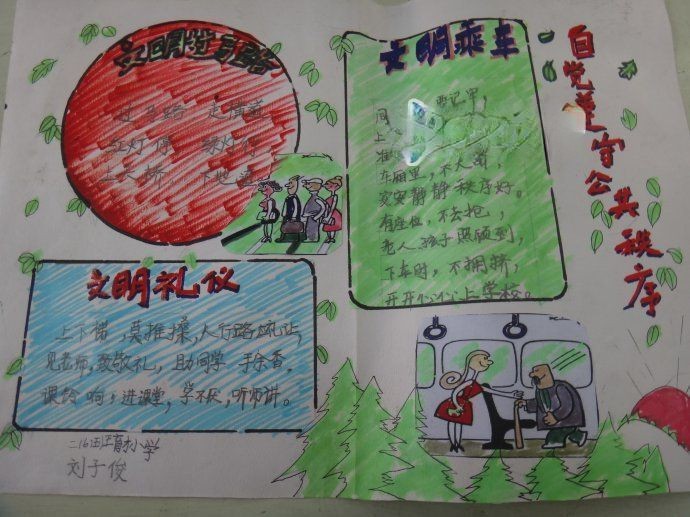 文明过马路
过马路 走横道
红灯停 绿灯行
上天桥 下地道
文明乘车
要记牢,
车厢里,不大声,
安安静静秩序好。
有座位,不去抢,
老人孩子照顾到,
下车时,不拥挤,
开开心心上学校。
自觉遵守公共秩序
文明礼仪
上下楼,莫推操,人行路,应礼让,
见老师,致敬礼,助同学 手余香,
课铃响,进课堂,学不厌,听师讲。
育才小学
刘子俊